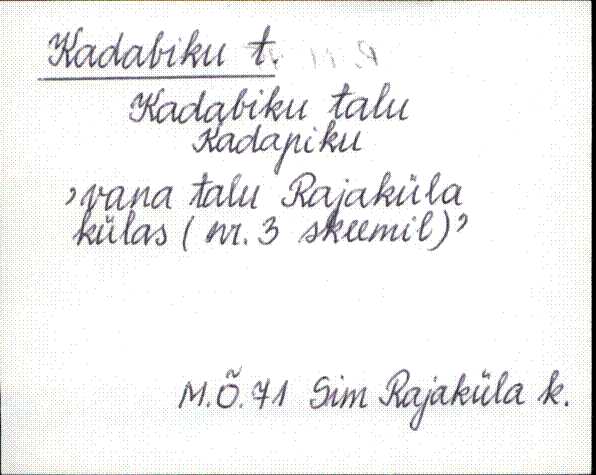 Kadabiku t.
Kadabiku talu
Kadapiku
›vana talu Rajaküla
külas (nr. 3 skeemil)›
M.Õ.71 Sim Rajaküla k.